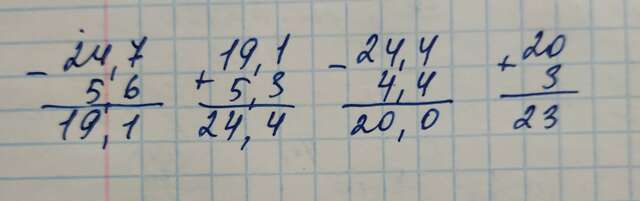 - 24,7 + 19,1 - 24,4 + 20
5,6 5,3 4,4 3
19,1 24,4 20,0 23